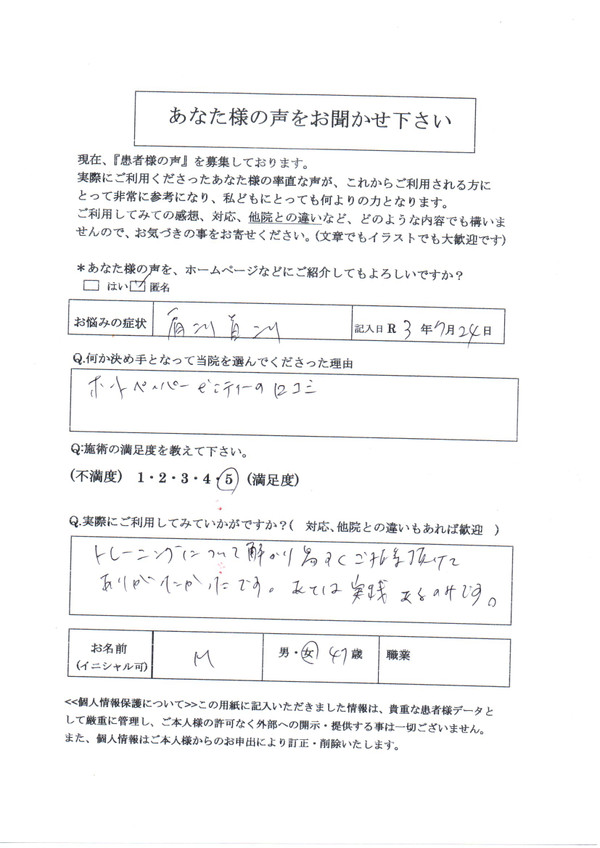 あなた様の声をお聞かせ下さい
現在、『患者様の声』を募集しております。
実際にご利用くださったあなた様の率直な声が、これからご利用される方に
とって非常に参考になり、私どもにとっても何よりの力となります。
ご利用してみての感想、対応、他院との違いなど、どのような内容でも構いま
せんので、お気づきの事をお寄せください。(文章でもイラストでも大歓迎です)
*あなた様の声を、ホームページなどにご紹介してもよろしいですか?
□ はい ☑ 匿名
お悩みの症状 肩コリ 首コリ 記入日 R 3 年 7月 24 日
Q.何か決め手となって当院を選んでくださった理由
ホットペッパービューティーの口コミ
Q:施術の満足度を教えて下さい。
(不満度) 1・2・3・4・5 (満足度)
Q.実際にご利用してみていかがですか?( 対応、他院との違いもあれば歓迎 )
トレーニングについて解かり易くご指導頂けて
ありがたかったです。あとは実践あるのみです。
お名前 M 男・女 47 歳 職業
(イニシャル可)
<<個人情報保護について>>この用紙に記入いただきました情報は、貴重な患者様データと
して厳重に管理し、ご本人様の許可なく外部への開示・提供する事は一切ございません。
また、個人情報はご本人様からのお申出により訂正・削除いたします。